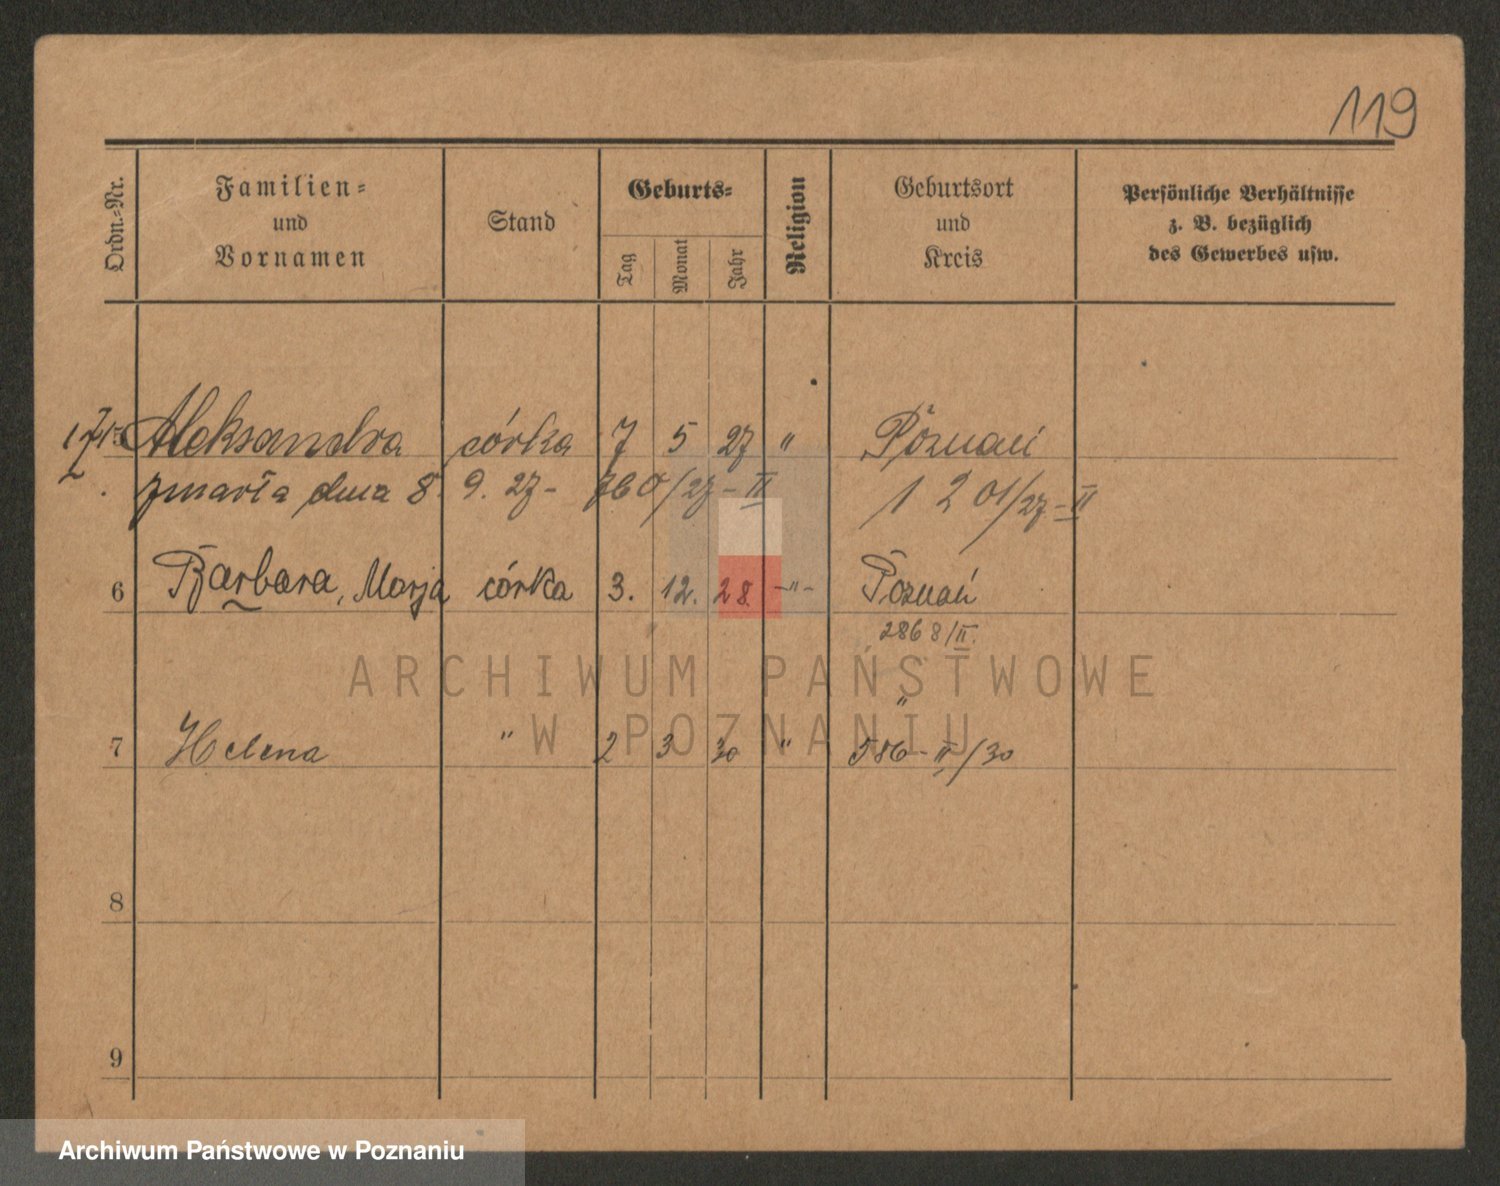 119
Ordn.-Nr.
Familien-
und
Vornamen
Stand
Geburts-
Tag
Monat
Jahr
Religion
Geburtsort
und
Kreis
Persönliche Verhältnisse
z. B. bezüglich
des Gewerbes usw.
Aleksandra córka 7 5 27 " Poznań
zmarła dnia 8. 9. 27 - 760/27 - II 1201/27 - II
6 Barbara, Marja córka 3. 12. 28. -"- Poznań
2868/II.
ARCHIWUM PAŃSTWOWE
W POZNANIU
"
7 Helena " 2 3 30 " 586 - II/30
8
9
Archiwum Państwowe w Poznaniu